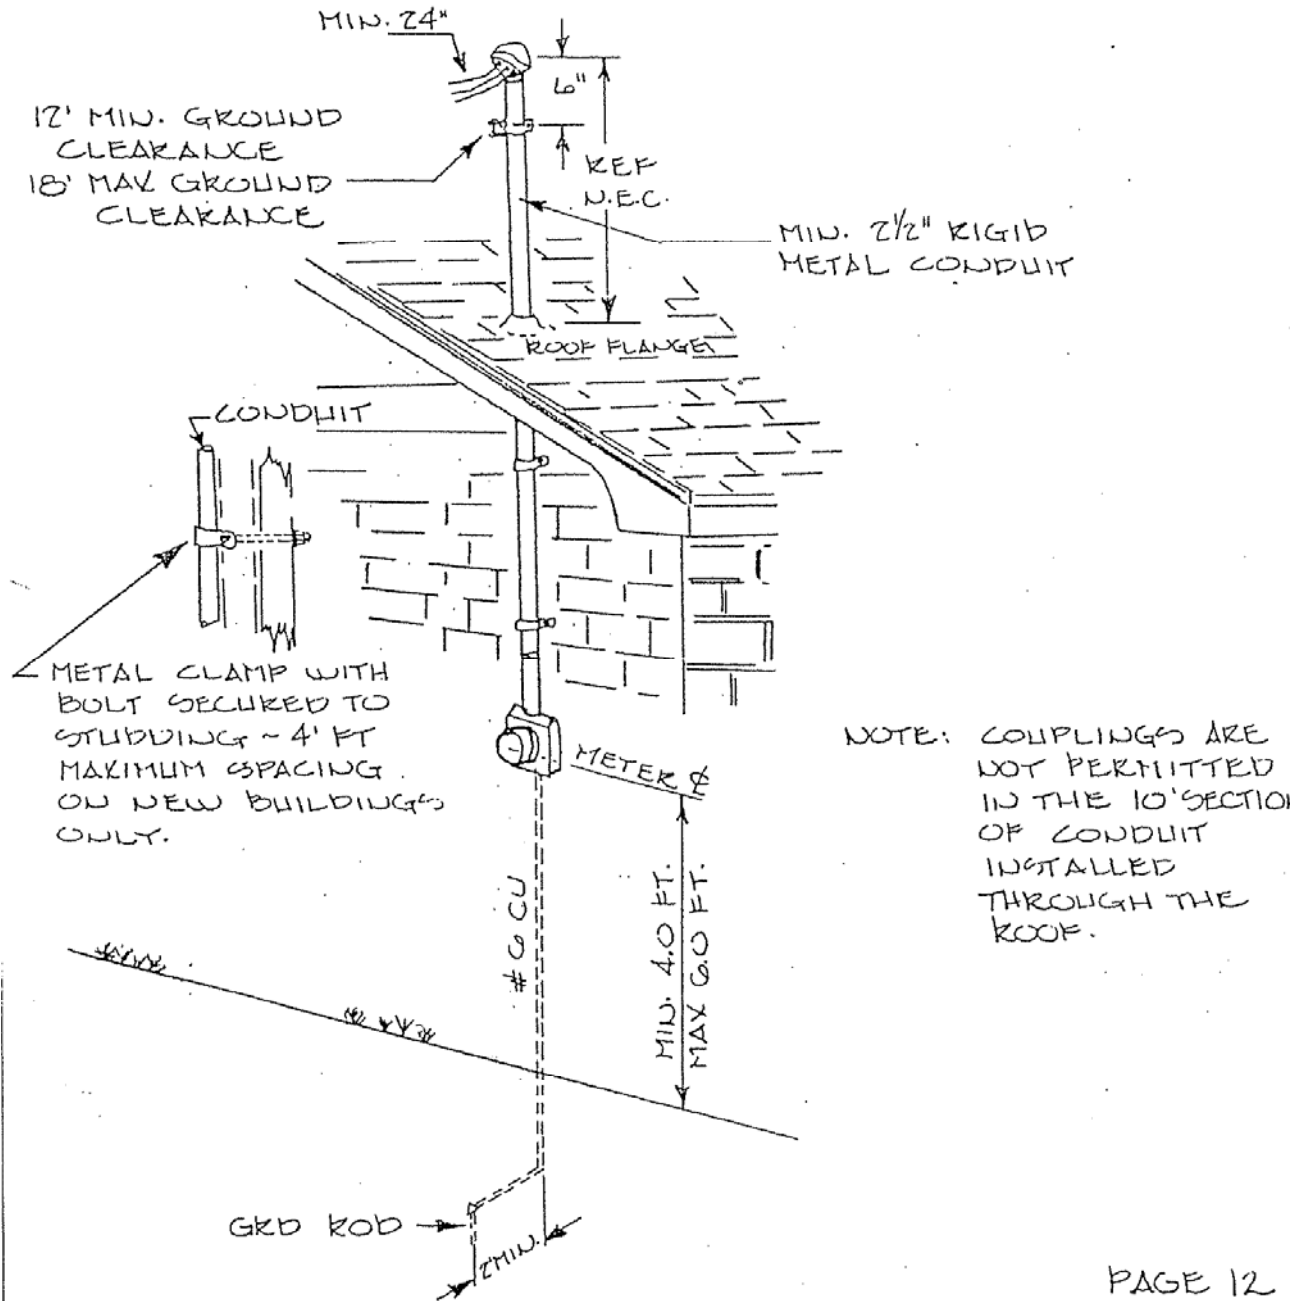 MIN. 24"
6"
12' MIN. GROUND
CLEARANCE
18' MAX GROUND
CLEARANCE
REF
N.E.C.
MIN. 2 1/2" RIGID
METAL CONDUIT
ROOF FLANGE
CONDUIT
METAL CLAMP WITH
BOLT SECURED TO
STUDDING ~ 4' FT
MAXIMUM SPACING
ON NEW BUILDINGS
ONLY.
METER ℄
NOTE: COUPLINGS ARE
NOT PERMITTED
IN THE 10' SECTION
OF CONDUIT
INSTALLED
THROUGH THE
ROOF.
# 6 CU
MIN. 4.0 FT.
MAX 6.0 FT.
GRD ROD
2' MIN.
PAGE 12